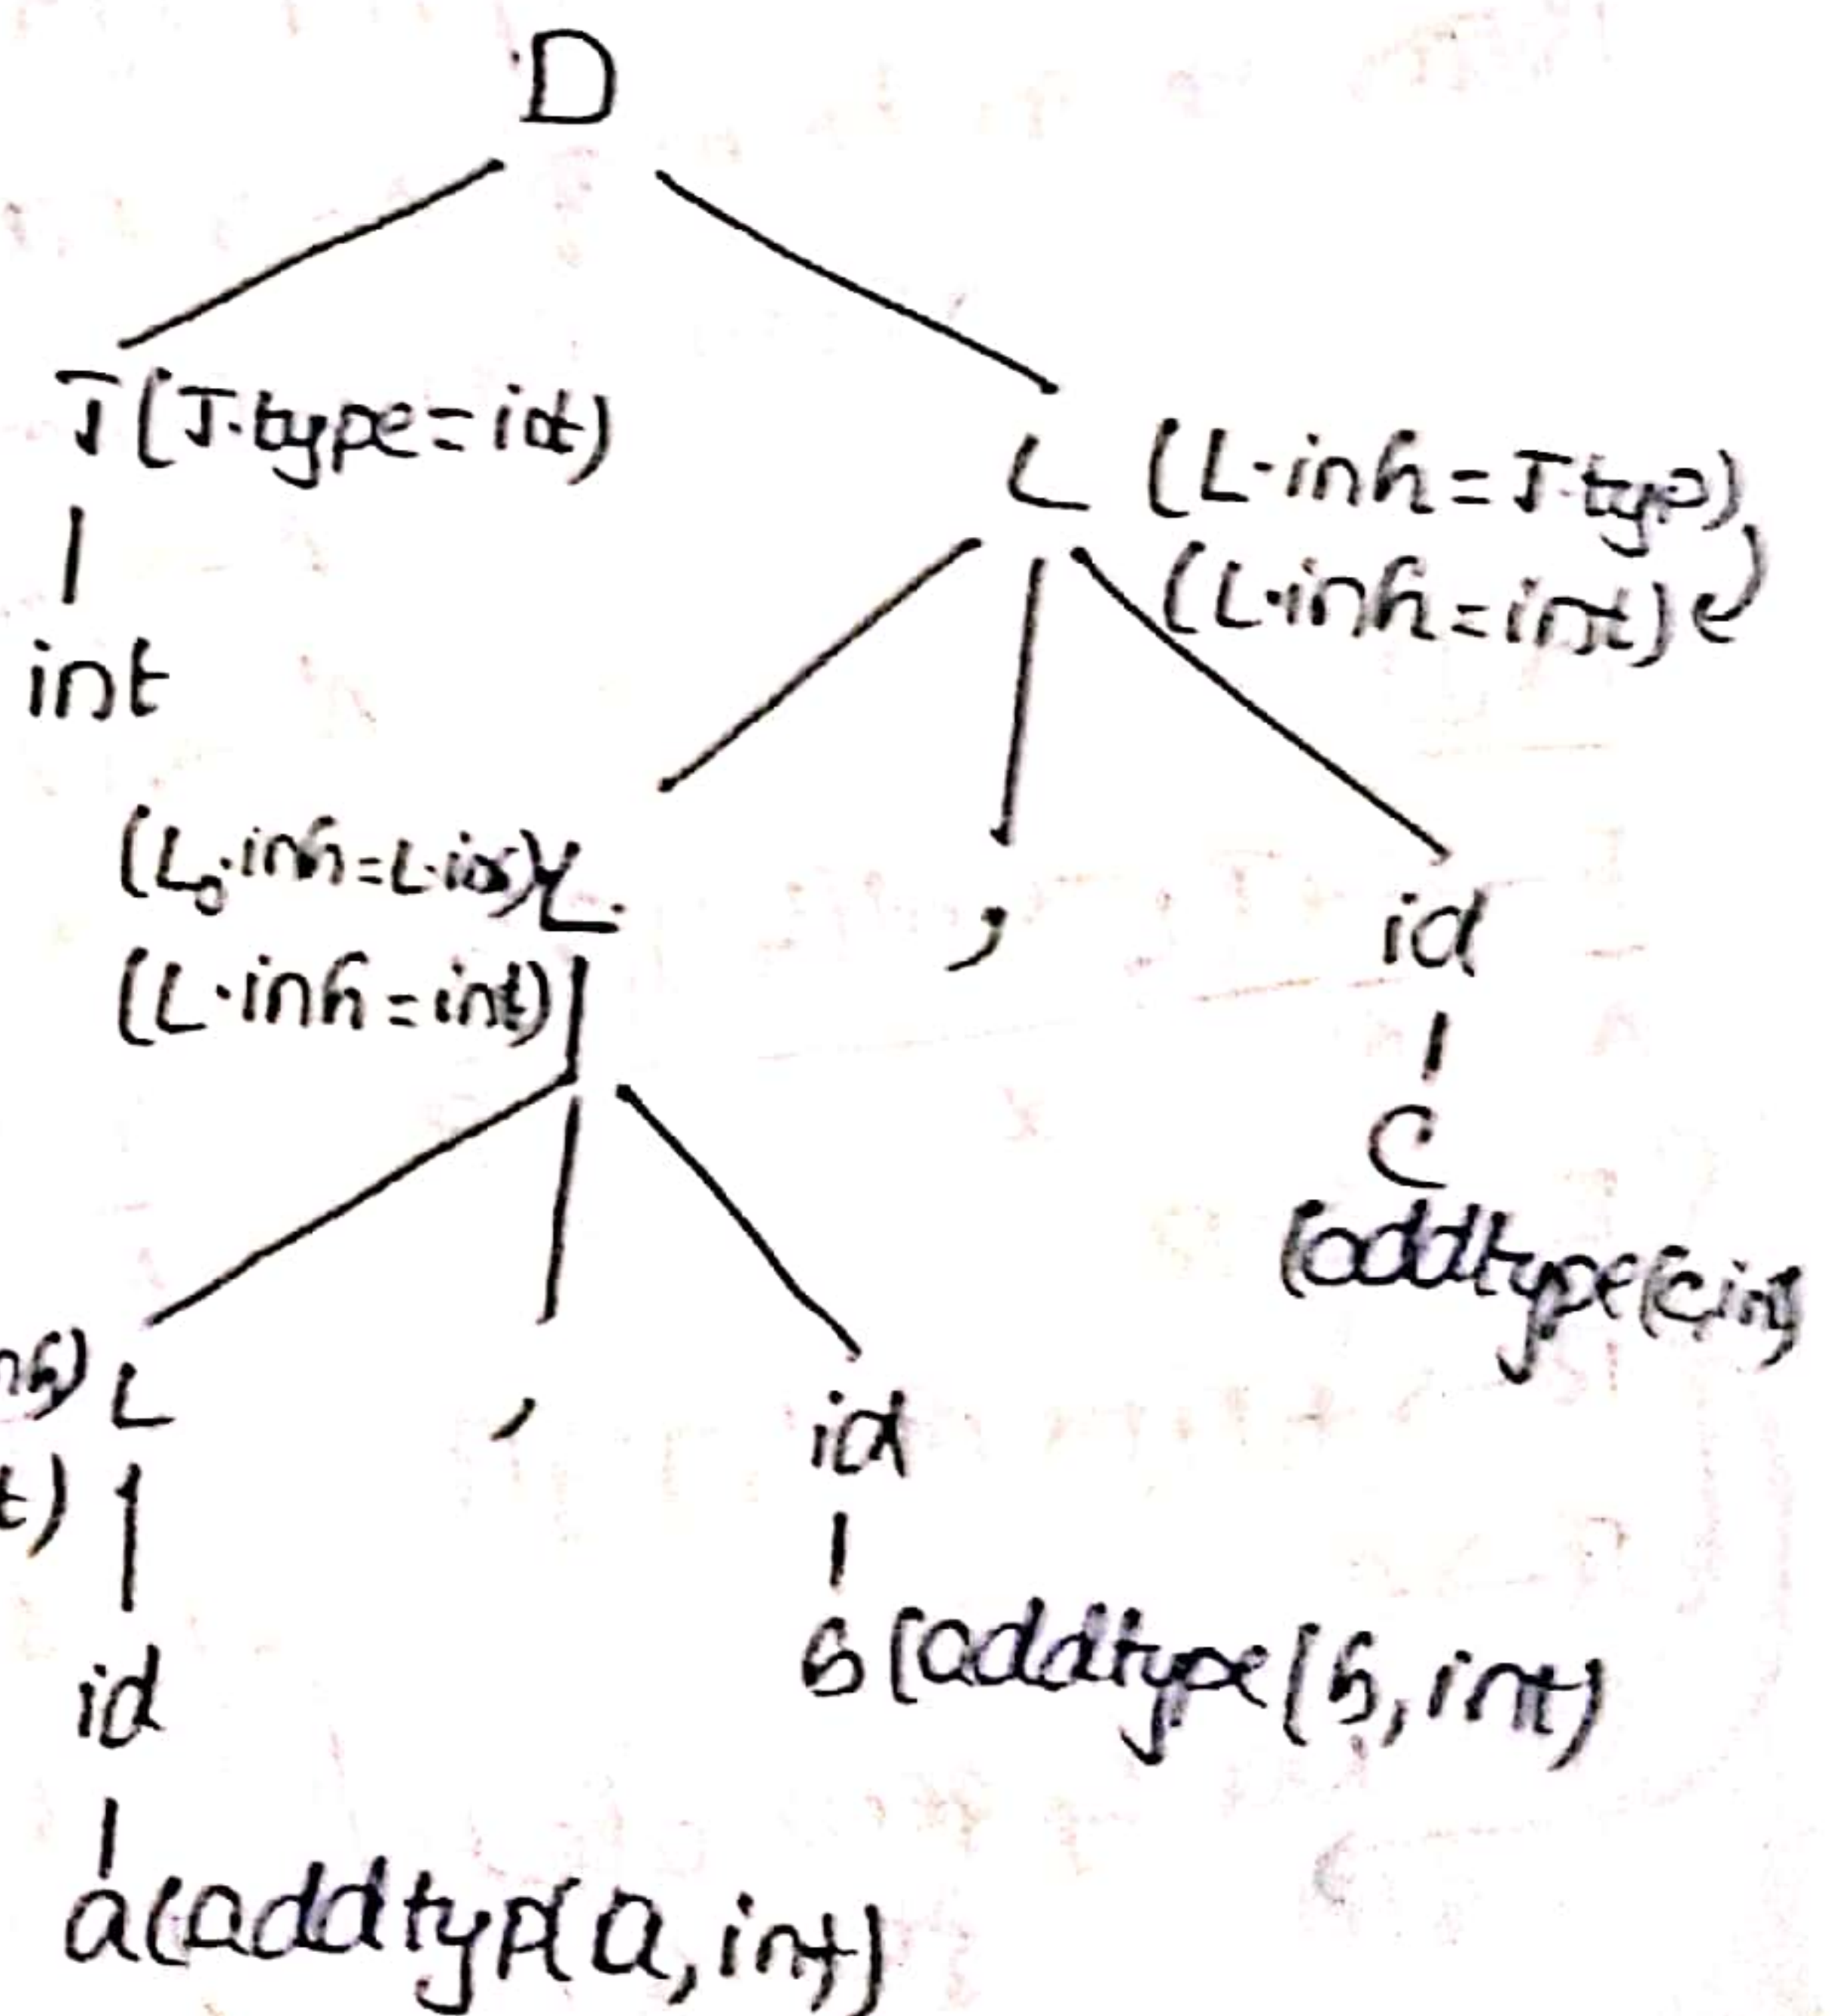 D
T(T.type=int)
L (L.inh=T.type)
(L.inh=int)
int
(L.inh=L.inh) L
, id
(L.inh=int)
C
(addtype(c,int)
nh) L , id
t)
b (addtype(b,int)
id
a(addtyp(a,int)